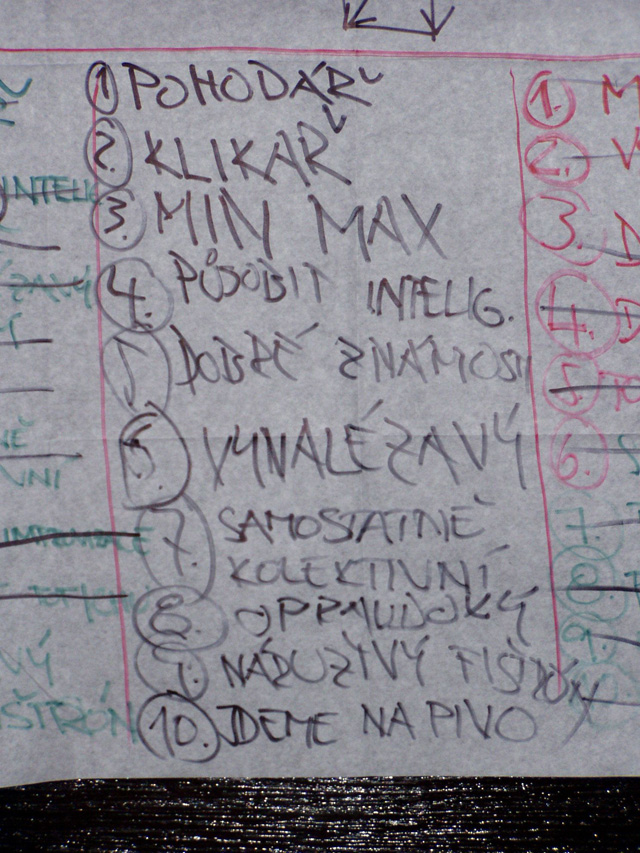 1. POHODÁŘ
2. KLIKAŘ
3. MIN MAX
4. PŮSOBIT INTELIG.
DOBRÉ ZNÁMOSTI
VYNALÉZAVÝ
7. SAMOSTATNĚ
KOLEKTIVNÍ
8. OPRAVDOKÝ
9. NÁRUŽIVÝ FIŠTRÓN
10. JDEME NA PIVO
INTELIG
VNÍ
VÝ
IŠTRÓN
1. M
2. V
3. D
4. D
5.
6.
7.
8.
9.